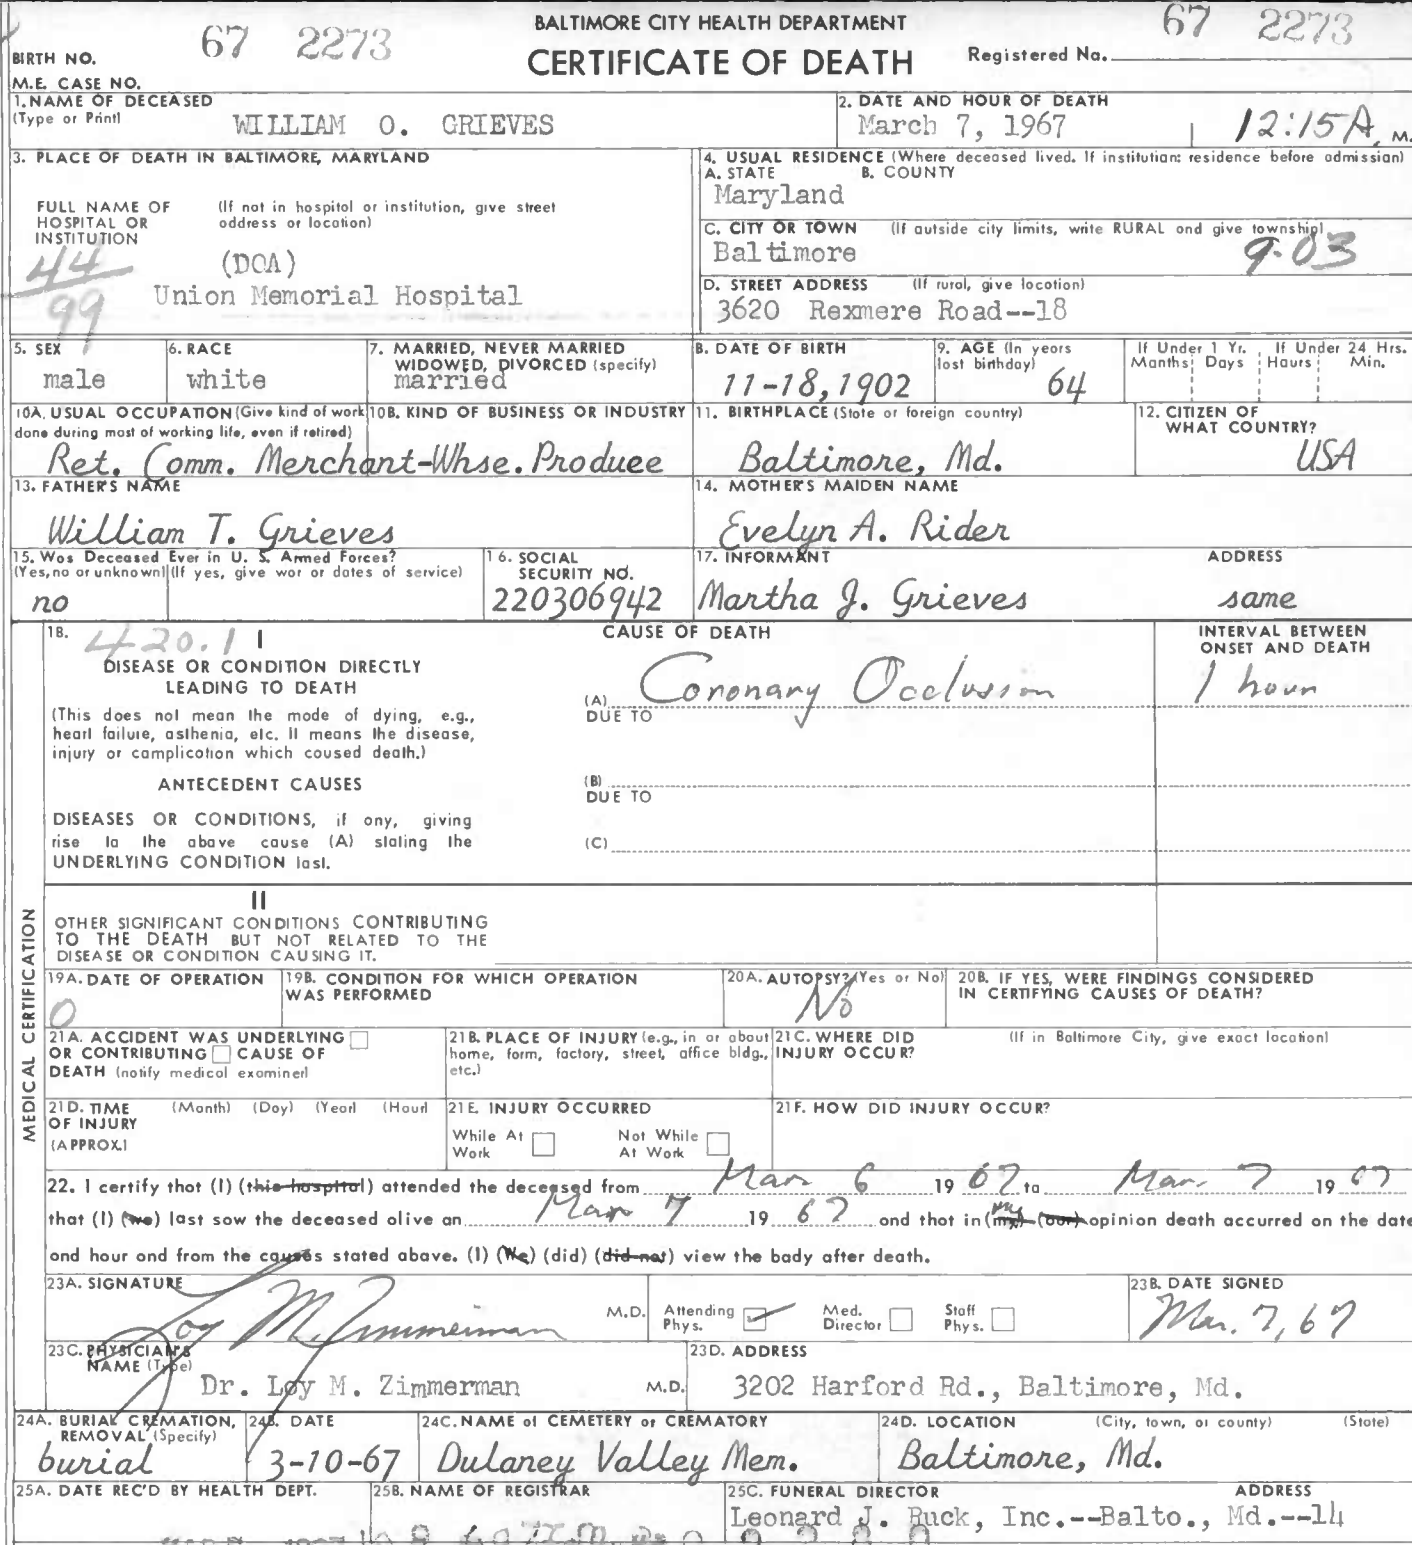 BALTIMORE CITY HEALTH DEPARTMENT
67 2273
67 2273
BIRTH NO.
CERTIFICATE OF DEATH
Registered No.
M.E. CASE NO.
1. NAME OF DECEASED
(Type or Print)
WILLIAM O. GRIEVES
2. DATE AND HOUR OF DEATH
March 7, 1967
12:15A. M.
3. PLACE OF DEATH IN BALTIMORE, MARYLAND
FULL NAME OF HOSPITAL OR INSTITUTION
(If not in hospital or institution, give street address or location)
44
99
(DOA)
Union Memorial Hospital
4. USUAL RESIDENCE (Where deceased lived. If institution: residence before admission)
A. STATE
B. COUNTY
Maryland
C. CITY OR TOWN (If outside city limits, write RURAL and give township)
Baltimore
9-03
D. STREET ADDRESS (If rural, give location)
3620 Rexmere Road--18
5. SEX
male
6. RACE
white
7. MARRIED, NEVER MARRIED
WIDOWED, DIVORCED (specify)
married
8. DATE OF BIRTH
11-18, 1902
9. AGE (In years last birthday)
64
If Under 1 Yr.
Months Days
If Under 24 Hrs.
Hours Min.
10A. USUAL OCCUPATION (Give kind of work done during most of working life, even if retired)
10B. KIND OF BUSINESS OR INDUSTRY
Ret. Comm. Merchant-Whse. Produce
11. BIRTHPLACE (State or foreign country)
Baltimore, Md.
12. CITIZEN OF WHAT COUNTRY?
USA
13. FATHER'S NAME
William T. Grieves
14. MOTHER'S MAIDEN NAME
Evelyn A. Rider
15. Was Deceased Ever in U. S. Armed Forces?
(Yes, no or unknown) (If yes, give war or dates of service)
no
16. SOCIAL SECURITY NO.
220306942
17. INFORMANT
Martha J. Grieves
ADDRESS
same
MEDICAL CERTIFICATION
18.
420.1
I
DISEASE OR CONDITION DIRECTLY
LEADING TO DEATH
(This does not mean the mode of dying, e.g.,
heart failure, asthenia, etc. It means the disease,
injury or complication which caused death.)
ANTECEDENT CAUSES
DISEASES OR CONDITIONS, if any, giving
rise to the above cause (A) stating the
UNDERLYING CONDITION last.
CAUSE OF DEATH
(A) Coronary Occlusion
DUE TO
(B)
DUE TO
(C)
INTERVAL BETWEEN
ONSET AND DEATH
1 hour
II
OTHER SIGNIFICANT CONDITIONS CONTRIBUTING
TO THE DEATH BUT NOT RELATED TO THE
DISEASE OR CONDITION CAUSING IT.
19A. DATE OF OPERATION
0
19B. CONDITION FOR WHICH OPERATION
WAS PERFORMED
20A. AUTOPSY? (Yes or No)
No
20B. IF YES, WERE FINDINGS CONSIDERED
IN CERTIFYING CAUSES OF DEATH?
21A. ACCIDENT WAS UNDERLYING
OR CONTRIBUTING CAUSE OF
DEATH (notify medical examiner)
21B. PLACE OF INJURY (e.g., in or about
home, farm, factory, street, office bldg.,
etc.)
21C. WHERE DID
INJURY OCCUR?
(If in Baltimore City, give exact location)
21D. TIME OF INJURY (APPROX.)
(Month) (Day) (Year) (Hour)
21E. INJURY OCCURRED
While At Work
Not While At Work
21F. HOW DID INJURY OCCUR?
22. I certify that (I) (this hospital) attended the deceased from Mar 6 19 67 to Mar. 7 19 67
that (I) (we) last saw the deceased alive on Mar 7 19 67 and that in (my) my (our) opinion death occurred on the date
and hour and from the causes stated above. (I) (We) (did) (did not) view the body after death.
23A. SIGNATURE
Loy M. Zimmerman
M.D.
Attending Phys.
Med. Director
Staff Phys.
23B. DATE SIGNED
Mar. 7, 67
23C. PHYSICIAN'S NAME (Type)
Dr. Loy M. Zimmerman
M.D.
23D. ADDRESS
3202 Harford Rd., Baltimore, Md.
24A. BURIAL CREMATION, REMOVAL (Specify)
burial
24B. DATE
3-10-67
24C. NAME of CEMETERY or CREMATORY
Dulaney Valley Mem.
24D. LOCATION (City, town, or county) (State)
Baltimore, Md.
25A. DATE REC'D BY HEALTH DEPT.
25B. NAME OF REGISTRAR
25C. FUNERAL DIRECTOR
ADDRESS
Leonard J. Ruck, Inc.--Balto., Md.--14